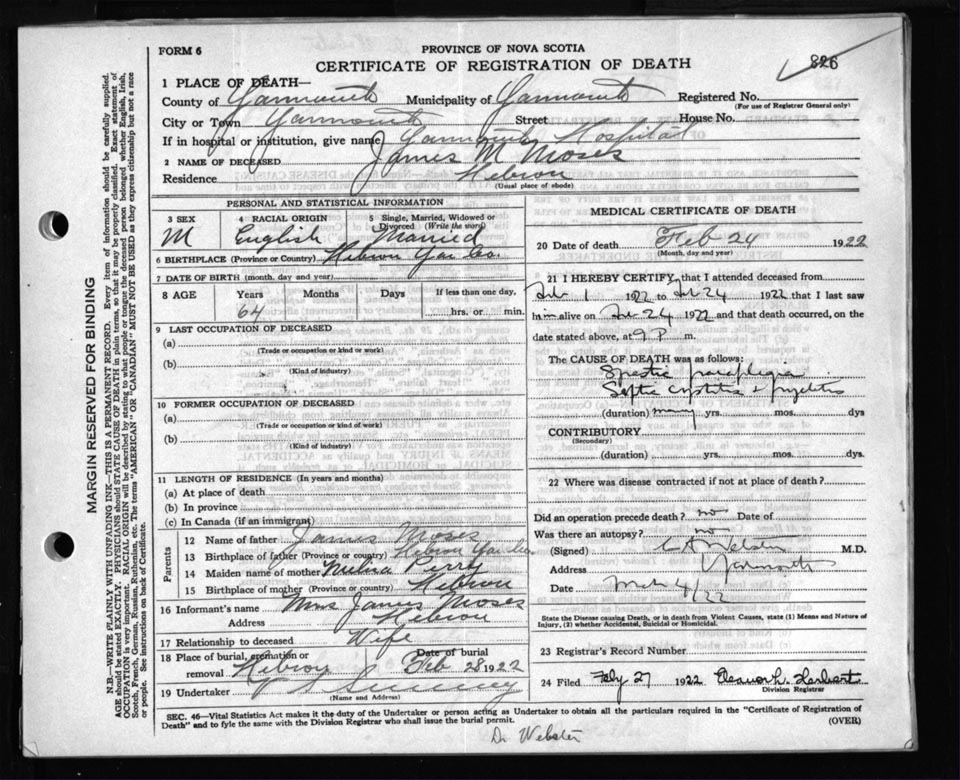 FORM 6
PROVINCE OF NOVA SCOTIA
CERTIFICATE OF REGISTRATION OF DEATH
826
1 PLACE OF DEATH—
County of Yarmouth Municipality of Yarmouth Registered No.
(For use of Registrar General only)
City or Town Yarmouth Street House No.
If in hospital or institution, give name Yarmouth Hospital
2 NAME OF DECEASED James M Moses
Residence Hebron
(Usual place of abode)
PERSONAL AND STATISTICAL INFORMATION
3 SEX M
4 RACIAL ORIGIN English
5 Single, Married, Widowed or Divorced (Write the word) Married
6 BIRTHPLACE (Province or Country) Hebron Yar Co.
7 DATE OF BIRTH (month, day and year)
8 AGE Years Months Days If less than one day,
64 hrs. or min.
9 LAST OCCUPATION OF DECEASED
(a)
(Trade or occupation or kind or work)
(b)
(Kind of industry)
10 FORMER OCCUPATION OF DECEASED
(a)
(Trade or occupation or kind of work)
(b)
(Kind of industry)
11 LENGTH OF RESIDENCE (In years and months)
(a) At place of death
(b) In province
(c) In Canada (if an immigrant)
Parents
12 Name of father James Moses
13 Birthplace of father (Province or country) Hebron Yar
14 Maiden name of mother Perry
15 Birthplace of mother (Province or country) Hebron
16 Informant's name Mrs James Moses
Address Hebron
17 Relationship to deceased Wife
18 Place of burial, cremation or removal Hebron Date of burial Feb 28 1922
19 Undertaker
(Name and Address)
MEDICAL CERTIFICATE OF DEATH
20 Date of death Feb 24 1922
(Month, day and year)
21 I HEREBY CERTIFY, that I attended deceased from
Feb 1 1922 to Feb 24 1922 that I last saw
him alive on Feb 24 1922 and that death occurred, on the
date stated above, at 9 P m.
The CAUSE OF DEATH was as follows:
Spastic paraplegia
Septic cystitis + pyelitis
(duration) many yrs. mos. dys
CONTRIBUTORY
(Secondary)
(duration) yrs. mos. dys.
22 Where was disease contracted if not at place of death?
Did an operation precede death? no Date of
Was there an autopsy? no
(Signed) C A Webster M.D.
Address Yarmouth
Date Mch 4/22
State the Disease causing Death, or in death from Violent Causes, state (1) Means and Nature of Injury, (2) whether Accidental, Suicidal or Homicidal.
23 Registrar's Record Number
24 Filed Feby 27 1922 Eleanor L. Herbert
Division Registrar
SEC. 46—Vital Statistics Act makes it the duty of the Undertaker or person acting as Undertaker to obtain all the particulars required in the "Certificate of Registration of
Death" and to fyle the same with the Division Registrar who shall issue the burial permit. (OVER)
Dr Webster
MARGIN RESERVED FOR BINDING
N.B.—WRITE PLAINLY WITH UNFADING INK—THIS IS A PERMANENT RECORD. Every item of information should be carefully supplied.
AGE should be stated EXACTLY. PHYSICIANS should STATE CAUSE OF DEATH in plain terms, so that it may be properly classified. Exact statement of
OCCUPATION is very important. RACIAL ORIGIN will be described by stating to what people or tongue the deceased person belonged whether English, Irish,
Scotch, French, German, Russian, Ruthenian, etc. The terms "AMERICAN" OR "CANADIAN" MUST NOT BE USED as they express citizenship but not a race
or people. See instructions on back of Certificate.